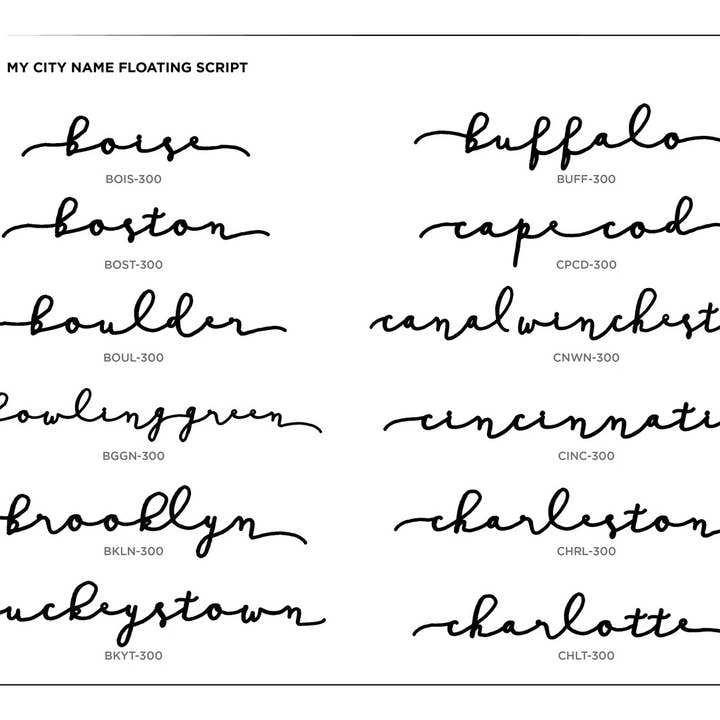 MY CITY NAME FLOATING SCRIPT
boise
BOIS-300
boston
BOST-300
boulder
BOUL-300
bowling green
BGGN-300
brooklyn
BKLN-300
uckeystown
BKYT-300
buffalo
BUFF-300
cape cod
CPCD-300
canal winchest
CNWN-300
cincinnati
CINC-300
charleston
CHRL-300
charlotte
CHLT-300